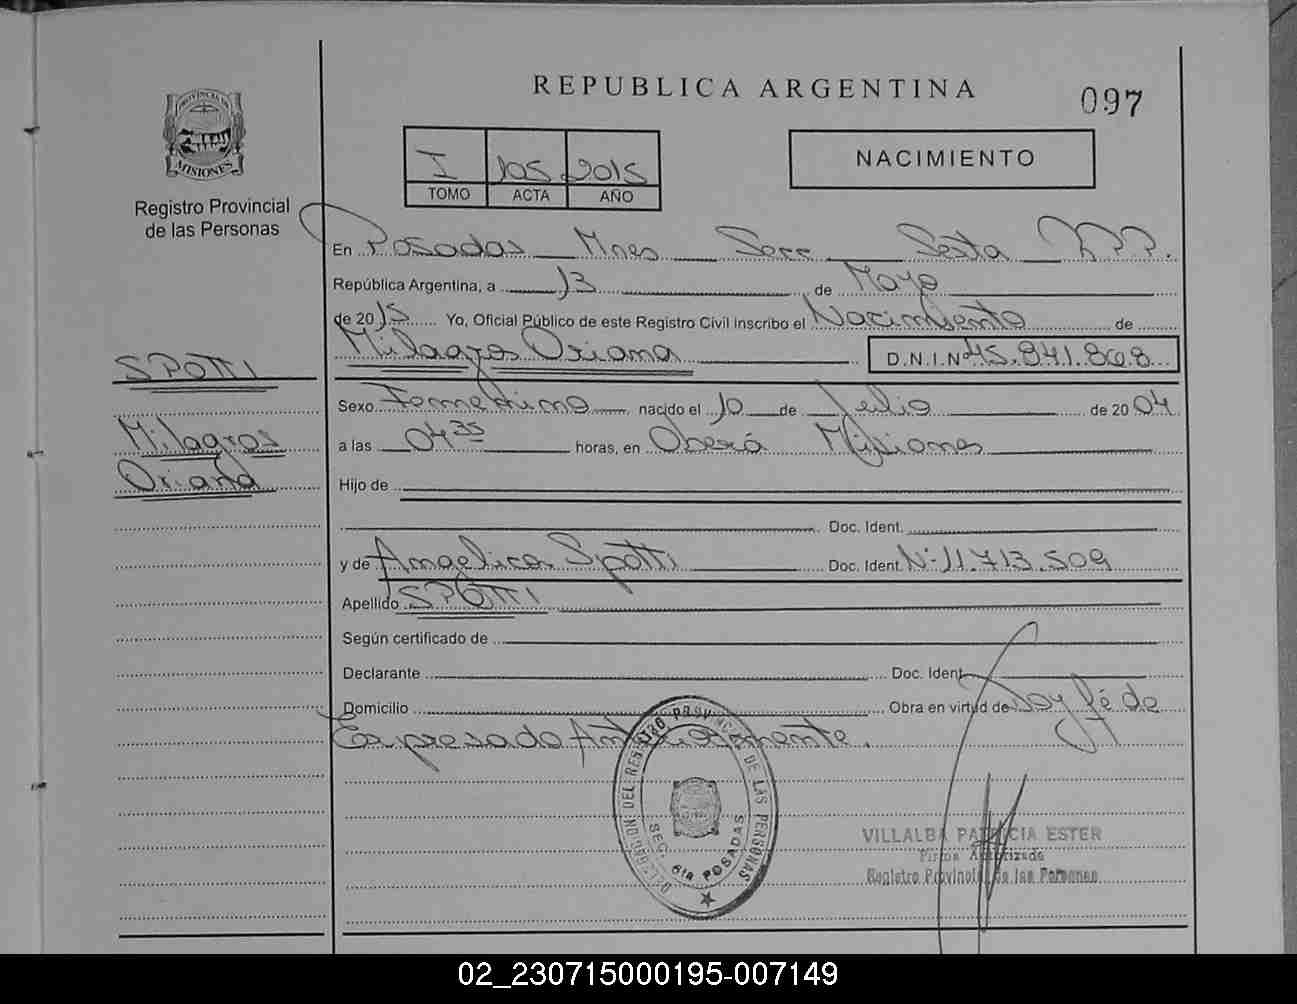 REPUBLICA ARGENTINA
097
PROVINCIA DE
MISIONES
Registro Provincial
de las Personas
I 105 2015
TOMO ACTA AÑO
NACIMIENTO
En Posadas Mnes Secc Sexta
República Argentina, a 13 de Mayo
de 2015 Yo, Oficial Público de este Registro Civil inscribo el Nacimiento de
Milagros Oriana D.N.I.Nº 45.841.868
SPOTTI
Milagros
Oriana
Sexo Femenino nacido el 10 de Julio de 2004
a las 04 35 horas, en Oberá Misiones
Hijo de
Doc. Ident.
y de Angelica Spotti Doc. Ident. Nº 11.713.509
Apellido SPOTTI
Según certificado de
Declarante Doc. Ident.
Domicilio Obra en virtud de Doy fé de
Expresado Anteriormente.
DELEGACION DEL REGISTRO PROVINCIAL DE LAS PERSONAS
SEC. 6ta POSADAS
VILLALBA PATRICIA ESTER
Firma Autorizada
Registro Provincial de las Personas
02_230715000195-007149